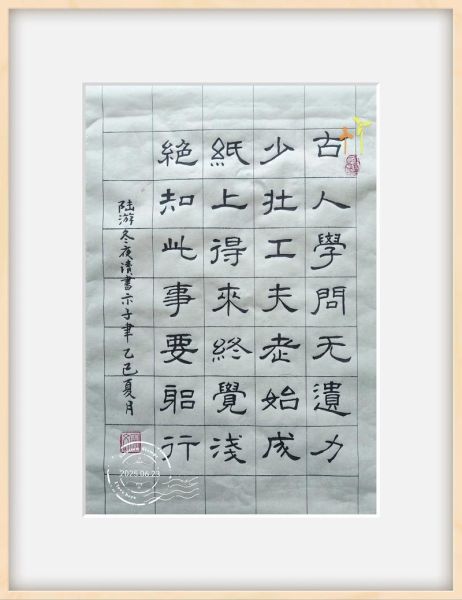 古人學問无遺力
少壮工夫老始成
紙上得來終覺淺
絶知此事要躬行
陸游冬夜读書示子聿 乙巳夏月
2025.06.23